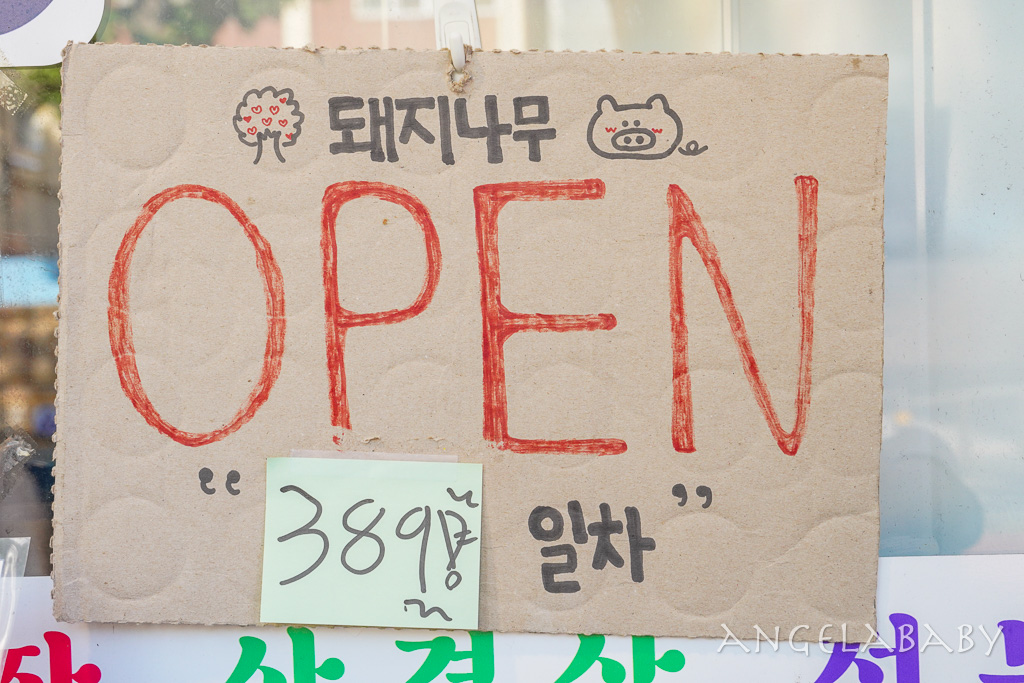 돼지나무
OPEN
“ 389 일차 ”
삼겹살
ANGELABABY